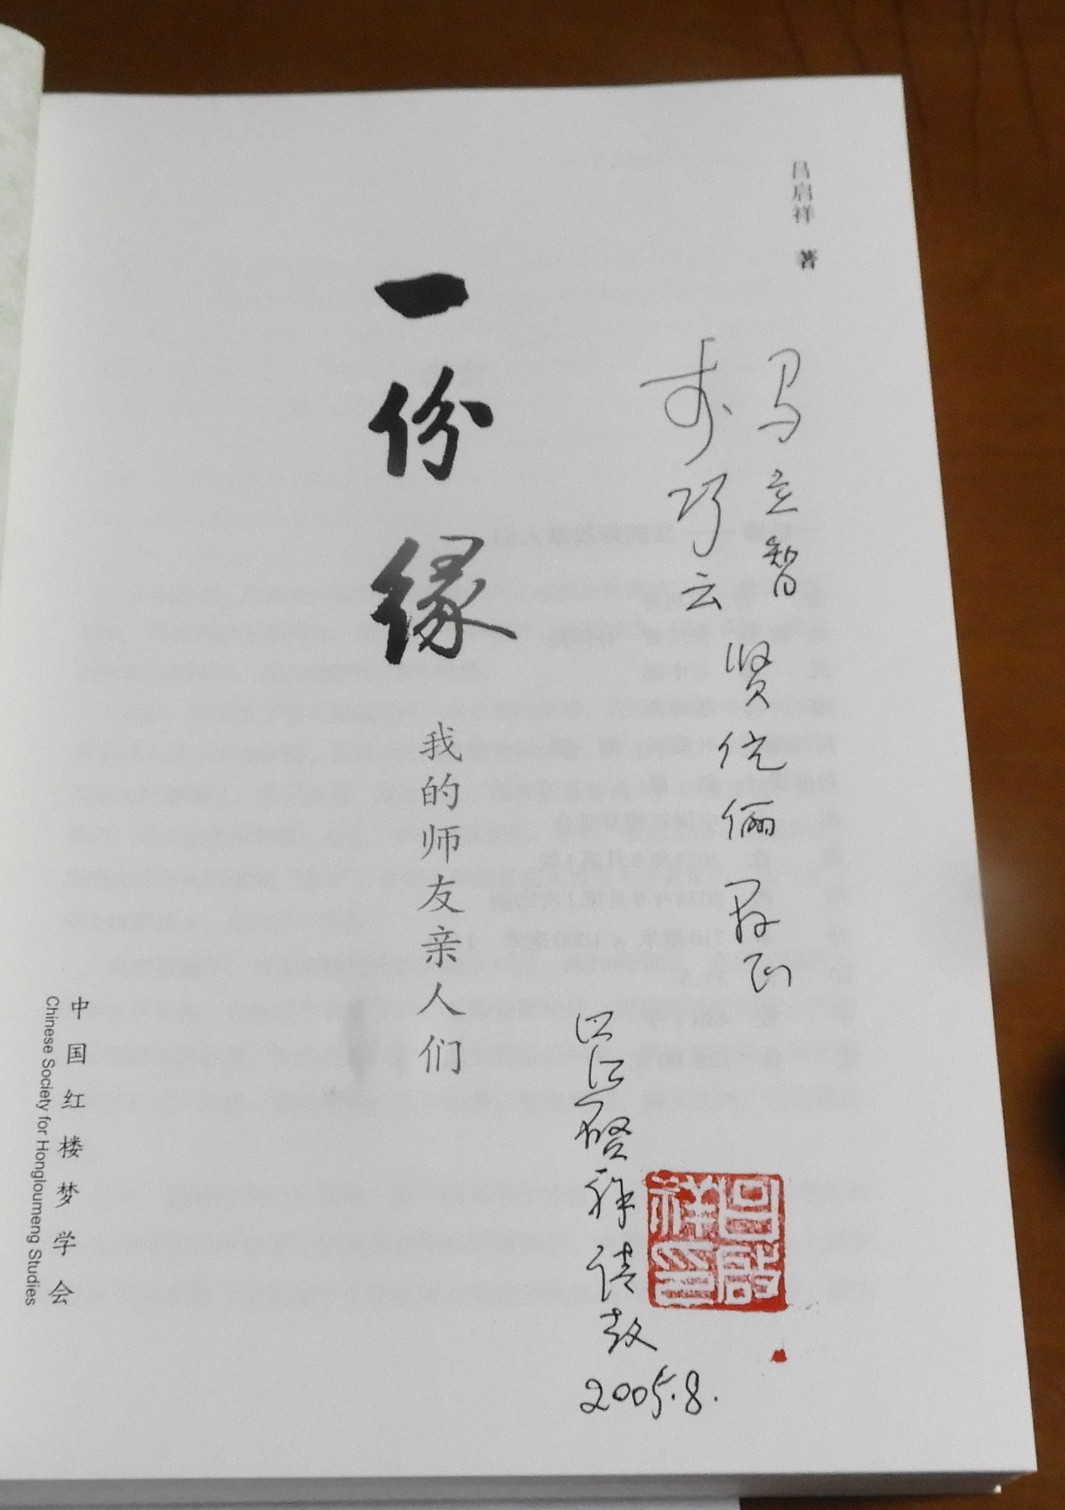 吕启祥 著
马立智
寿巧云
贤伉俪 正
启祥请教
2005.8.
吕启祥印
一份缘
我的师友亲人们
中国红楼梦学会
Chinese Society for Hongloumeng Studies